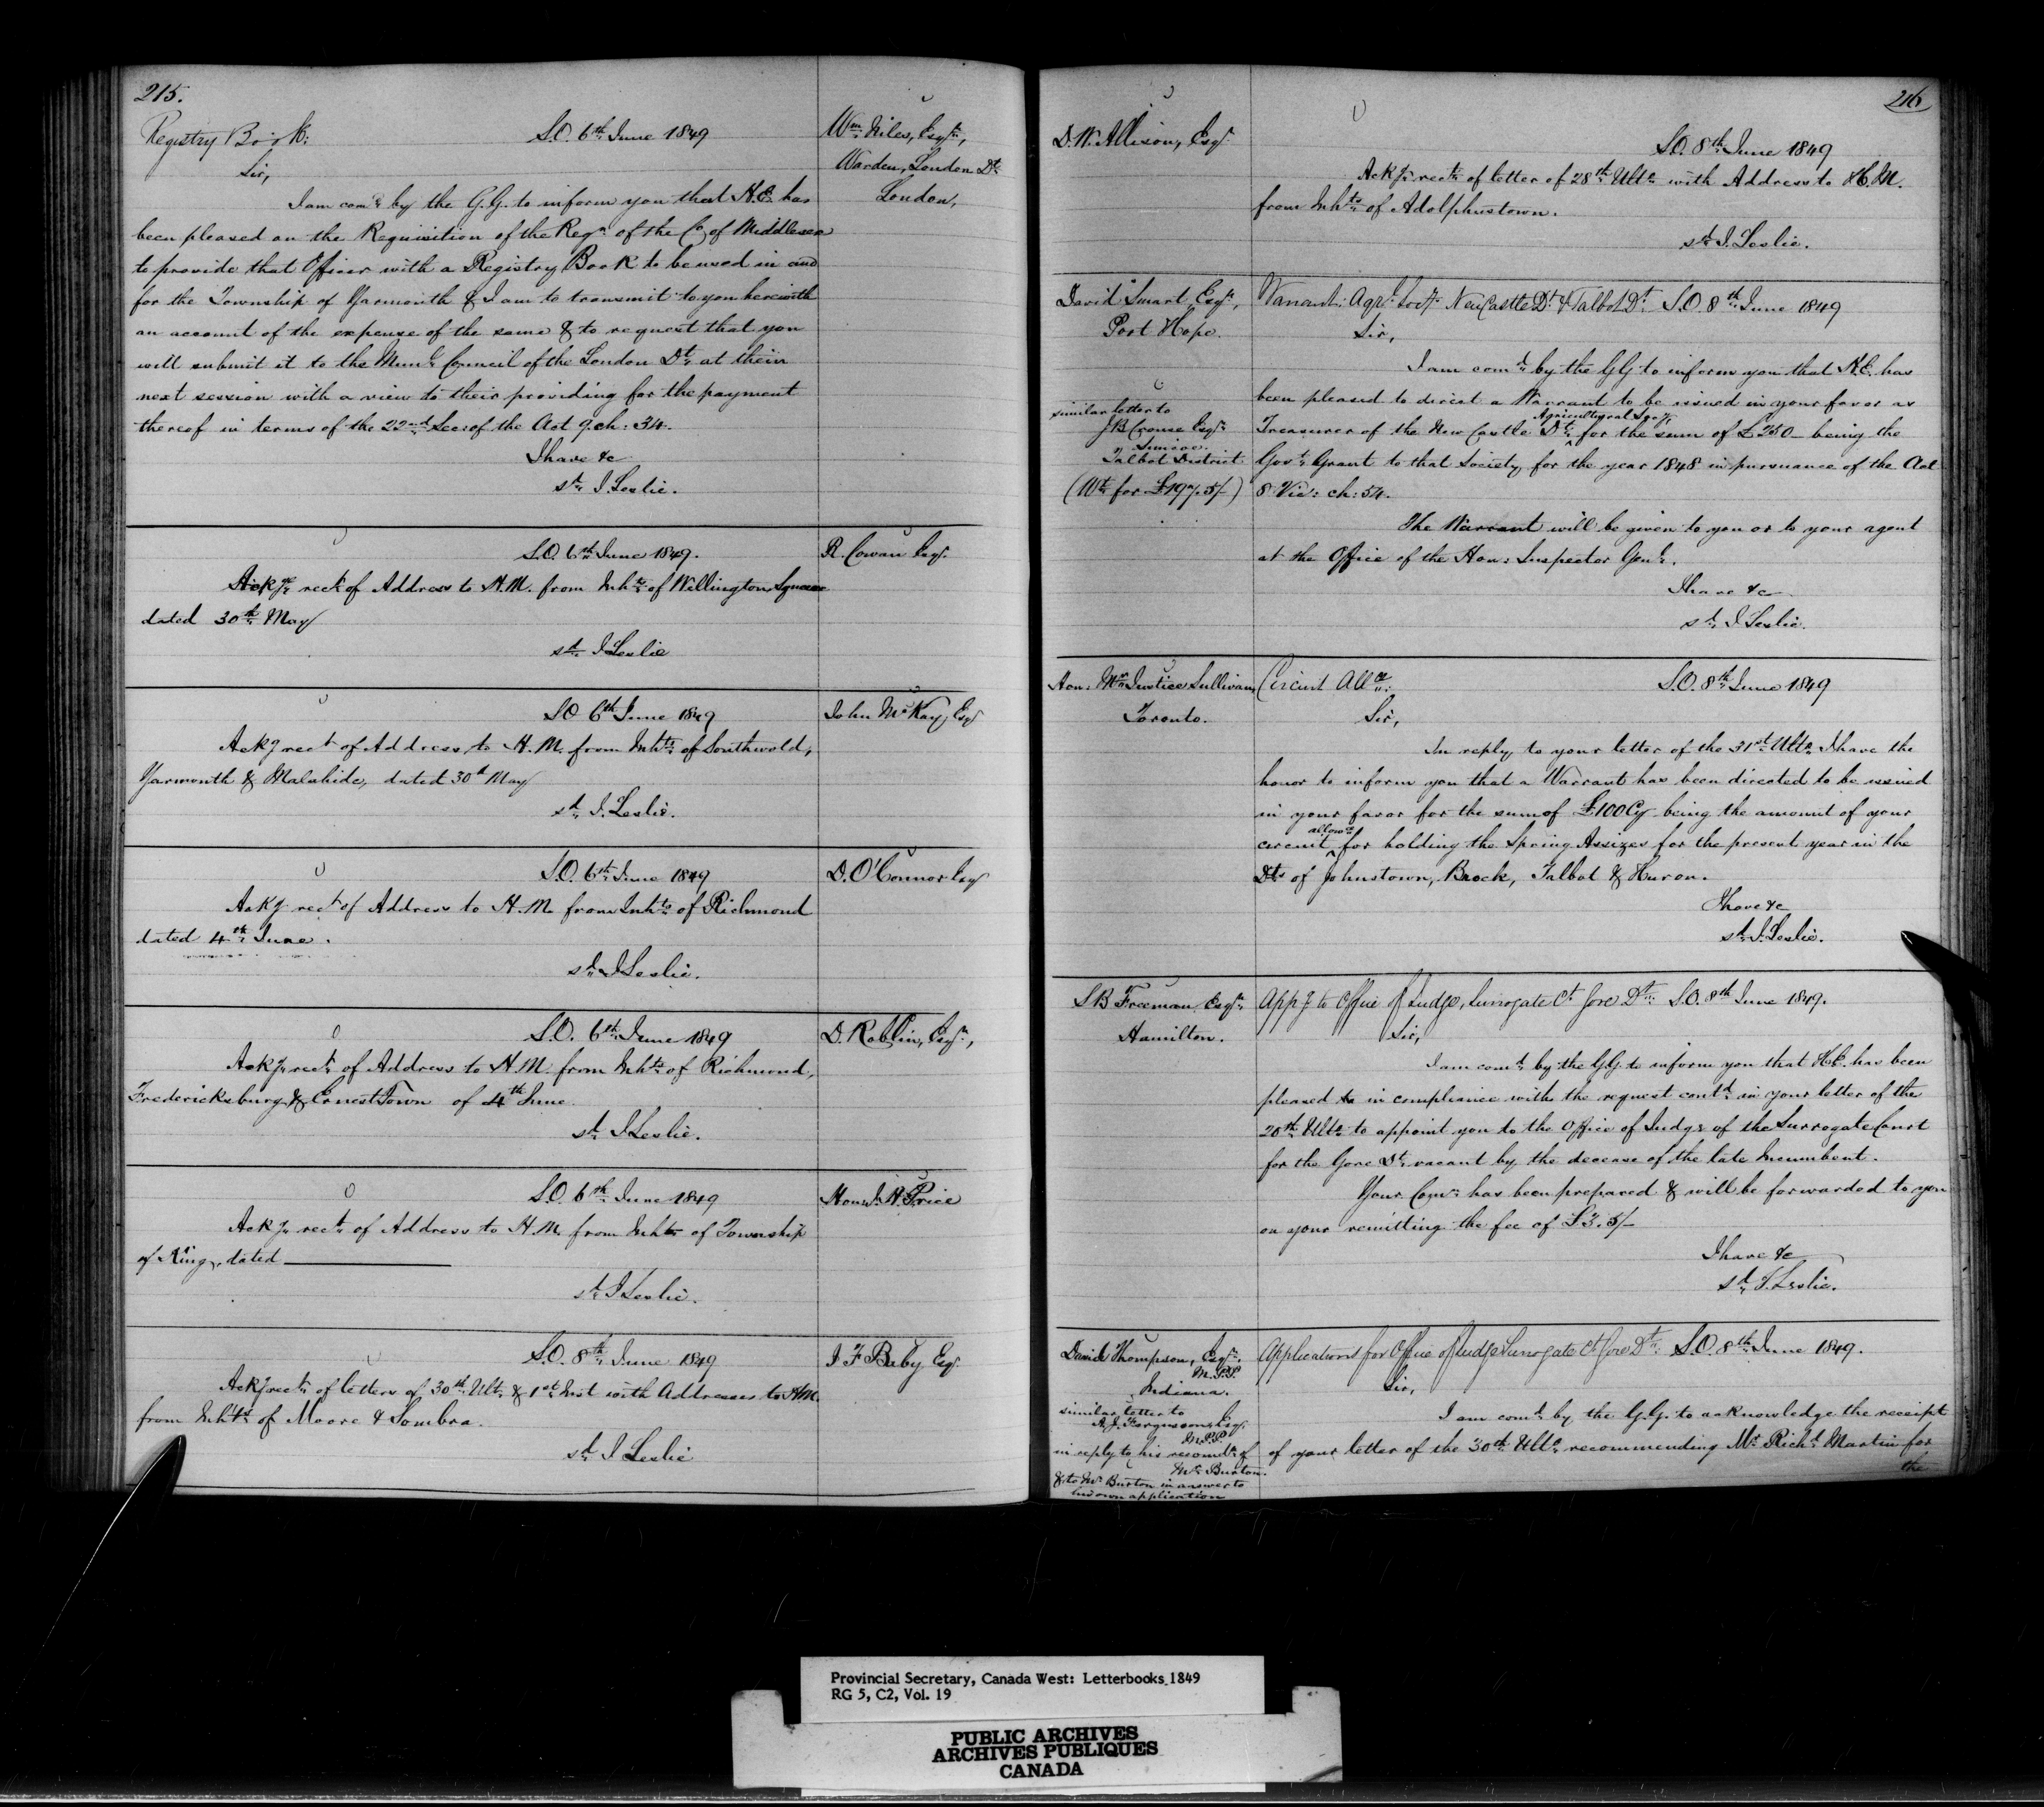 215.
Registry Book:
S.O. 6th June 1849
Wm Niles, Esqr,
Warden, London Dt
London,
Sir,
I am comd by the G.G. to inform you that H.E. has
been pleased on the Requisition of the Regr of the Co. of Middlesex
to provide that Officer with a Registry Book to be used in and
for the Township of Yarmouth & I am to transmit to you herewith
an account of the expense of the same & to request that you
will submit it to the Munl Council of the London Dt at their
next session with a view to their providing for the payment
thereof in terms of the 22nd Sec: of the Act 9. ch: 34.
I have &c
sd J. Leslie.
S.O. 6th June 1849.
R. Cowan Esqr
Ackg rect of Address to H.M. from Inhts of Wellington Square
dated 30th May
sd J Leslie
S.O 6th June 1849
John McKay, Esqr
Ackg rect of Address to H.M. from Inhts of Southwold,
Yarmouth & Malahide, dated 30th May
sd J. Leslie.
S.O. 6th June 1849
D. O'Connor Esqr
Ackg rect of Address to H.M. from Inhts of Richmond
dated 4th June.
sd J Leslie.
S.O. 6th June 1849
D. Roblin, Esqr,
Ackg rect of Address to H.M. from Inhts of Richmond,
Fredericksburg & ErnestTown of 4th June
sd J Leslie.
S.O. 6th June 1849
Hon: J. H. Price
Ackg rect of Address to H.M. from Inhts of Township
of King, dated
sd J Leslie.
S.O. 8th June 1849
J F Baby Esqr
Ackg rect of letters of 30th Ulto & 1st Inst with Addresses to H.M.
from Inhts of Moore & Sombra.
sd J Leslie
216
D. W. Allison, Esqr
S.O. 8th June 1849
Ackg rect of letter of 28th Ulto with Address to H.M.
from Inhts of Adolphustown.
sd J. Leslie.
David Smart Esqr,
Port Hope.
Warrant: Agrl Socy NewCastle Dt & Talbot Dt S.O. 8th June 1849
Sir,
I am comd by the GG to inform you that H.E. has
been pleased to direct a Warrant to be issued in your favor as
similar letter to
J B Crouse Esqr
Simcoe
Talbot District
(Wt for £197.5/-)
Agricultural Socy
Treasurer of the New Castle Dt for the sum of £250 - being the
Govt Grant to that Society for the year 1848 in pursuance of the Act
8 Vic: ch: 54.
The Warrant will be given to you or to your agent
at the Office of the Hon: Inspector Genl.
I have &c
sd J Leslie.
Hon: Mr Justice Sullivan,
Toronto.
Circuit Allce:
S.O. 8th June 1849
Sir,
In reply to your letter of the 31st Ulto I have the
honor to inform you that a Warrant has been directed to be issued
in your favor for the sum of £100 Cy being the amount of your
allowe
circuit for holding the Spring Assizes for the present year in the
Dts of Johnstown, Brock, Talbot & Huron.
I have &c
sd J. Leslie.
S B Freeman Esqr
Hamilton.
Appg to Office of Judge, Surrogate Ct Gore Dt: S.O. 8th June 1849.
Sir,
I am comd by the GG to inform you that H.E. has been
pleased to in compliance with the request contd in your letter of the
20th Ulto to appoint you to the Office of Judge of the Surrogate Court
for the Gore Dt vacant by the decease of the late Incumbent.
Your Comn has been prepared & will be forwarded to you
on your remitting the fee of £3.5/-
I have &c
sd J. Leslie.
David Thompson, Esqr,
M.P.P.
Indiana.
Applications for Office of Judge Surrogate Ct Gore Dt: S.O. 8th June 1849.
Sir,
I am comd by the G.G. to acknowledge the receipt
of your letter of the 30th Ulto recommending Mr Richd Martin for
the
similar letter to
A. J. Fergusson, Esqr.
M.P.P.
in reply to his recomdn of
Mr Burton.
& to Mr Burton in answer to
his own application
Provincial Secretary, Canada West: Letterbooks 1849
RG 5, C2, Vol. 19
PUBLIC ARCHIVES
ARCHIVES PUBLIQUES
CANADA